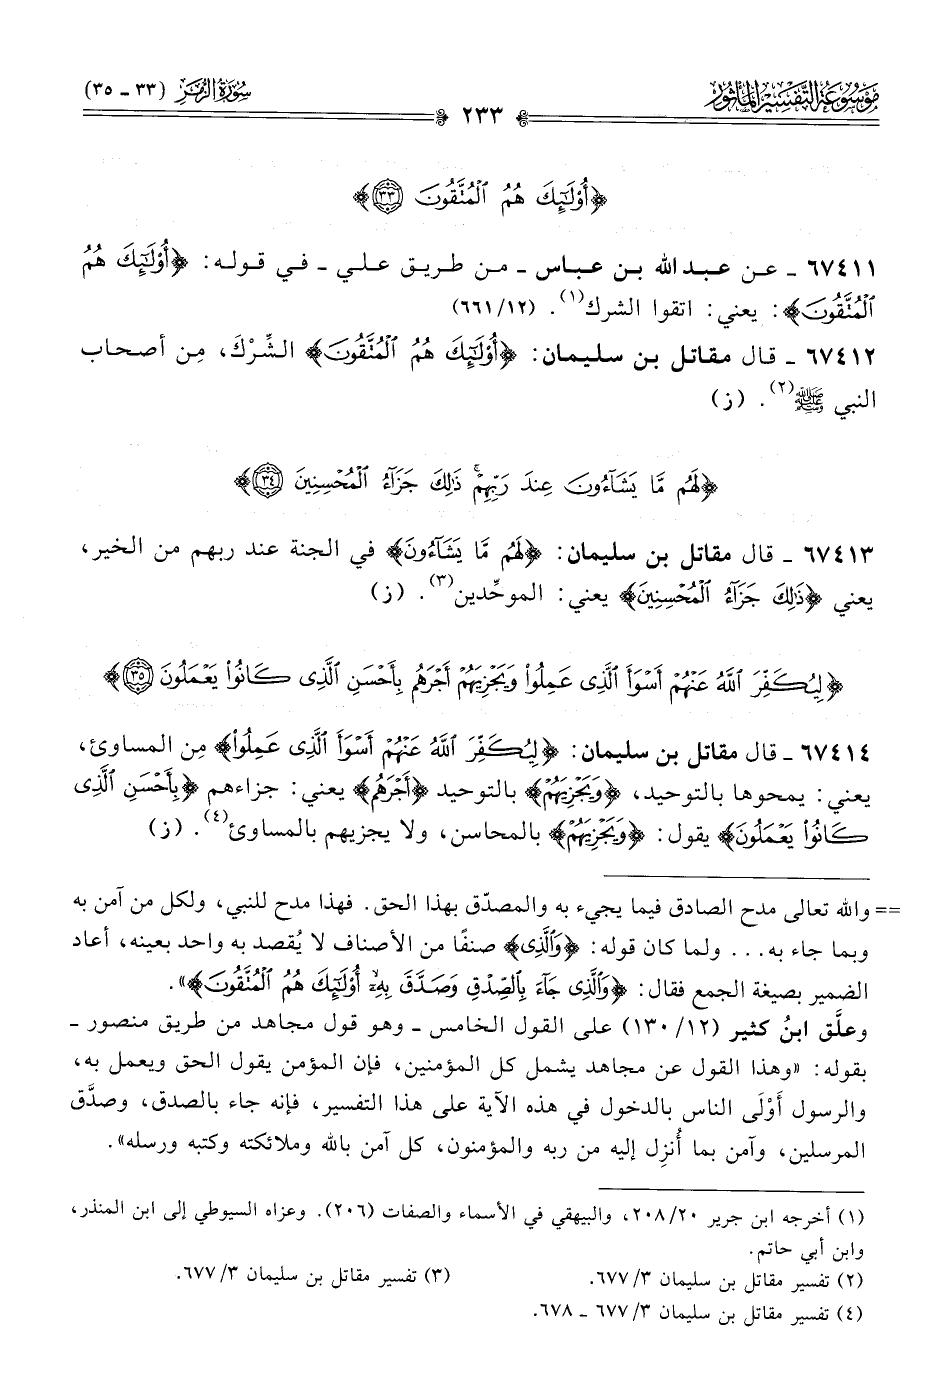 موسوعة التفسير المأثور
سورة الزمر (٣٣ - ٣٥)
٢٣٣
﴿أُوْلَٰٓئِكَ هُمُ ٱلْمُتَّقُونَ ٣٣﴾
٦٧٤١١ ـ عن عبد الله بن عباس ـ من طريق علي ـ في قوله: ﴿أُوْلَٰٓئِكَ هُمُ
ٱلْمُتَّقُونَ﴾: يعني: اتقوا الشرك(١). (١٢/ ٦٦١)
٦٧٤١٢ ـ قال مقاتل بن سليمان: ﴿أُوْلَٰٓئِكَ هُمُ ٱلْمُتَّقُونَ﴾ الشِّرْكَ، مِن أصحاب
النبي ﷺ(٢). (ز)
﴿لَهُم مَّا يَشَآءُونَ عِندَ رَبِّهِمْۚ ذَٰلِكَ جَزَآءُ ٱلْمُحْسِنِينَ ٣٤﴾
٦٧٤١٣ ـ قال مقاتل بن سليمان: ﴿لَهُم مَّا يَشَآءُونَ﴾ في الجنة عند ربهم من الخير،
يعني ﴿ذَٰلِكَ جَزَآءُ ٱلْمُحْسِنِينَ﴾ يعني: الموحِّدين(٣). (ز)
﴿لِيُكَفِّرَ ٱللَّهُ عَنْهُمْ أَسْوَأَ ٱلَّذِى عَمِلُواْ وَيَجْزِيَهُمْ أَجْرَهُم بِأَحْسَنِ ٱلَّذِى كَانُواْ يَعْمَلُونَ ٣٥﴾
٦٧٤١٤ ـ قال مقاتل بن سليمان: ﴿لِيُكَفِّرَ ٱللَّهُ عَنْهُمْ أَسْوَأَ ٱلَّذِى عَمِلُواْ﴾ مِن المساوئ،
يعني: يمحوها بالتوحيد، ﴿وَيَجْزِيَهُمْ﴾ بالتوحيد ﴿أَجْرَهُم﴾ يعني: جزاءهم ﴿بِأَحْسَنِ ٱلَّذِى
كَانُواْ يَعْمَلُونَ﴾ يقول: ﴿وَيَجْزِيَهُمْ﴾ بالمحاسن، ولا يجزيهم بالمساوئ(٤). (ز)
== والله تعالى مدح الصادق فيما يجيء به والمصدّق بهذا الحق. فهذا مدح للنبي، ولكل من آمن به
وبما جاء به... ولما كان قوله: ﴿وَٱلَّذِى﴾ صنفًا من الأصناف لا يُقصد به واحد بعينه، أعاد
الضمير بصيغة الجمع فقال: ﴿وَٱلَّذِى جَآءَ بِٱلصِّدْقِ وَصَدَّقَ بِهِۦٓۙ أُوْلَٰٓئِكَ هُمُ ٱلْمُتَّقُونَ﴾».
وعلَّق ابنُ كثير (١٢/ ١٣٠) على القول الخامس ـ وهو قول مجاهد من طريق منصور ـ
بقوله: «وهذا القول عن مجاهد يشمل كل المؤمنين، فإن المؤمن يقول الحق ويعمل به،
والرسول أَوْلَى الناس بالدخول في هذه الآية على هذا التفسير، فإنه جاء بالصدق، وصدَّق
المرسلين، وآمن بما أُنزِل إليه من ربه والمؤمنون، كل آمن بالله وملائكته وكتبه ورسله».
(١) أخرجه ابن جرير ٢٠/ ٢٠٨، والبيهقي في الأسماء والصفات (٢٠٦). وعزاه السيوطي إلى ابن المنذر،
وابن أبي حاتم.
(٢) تفسير مقاتل بن سليمان ٣/ ٦٧٧.
(٣) تفسير مقاتل بن سليمان ٣/ ٦٧٧.
(٤) تفسير مقاتل بن سليمان ٣/ ٦٧٧ ـ ٦٧٨.